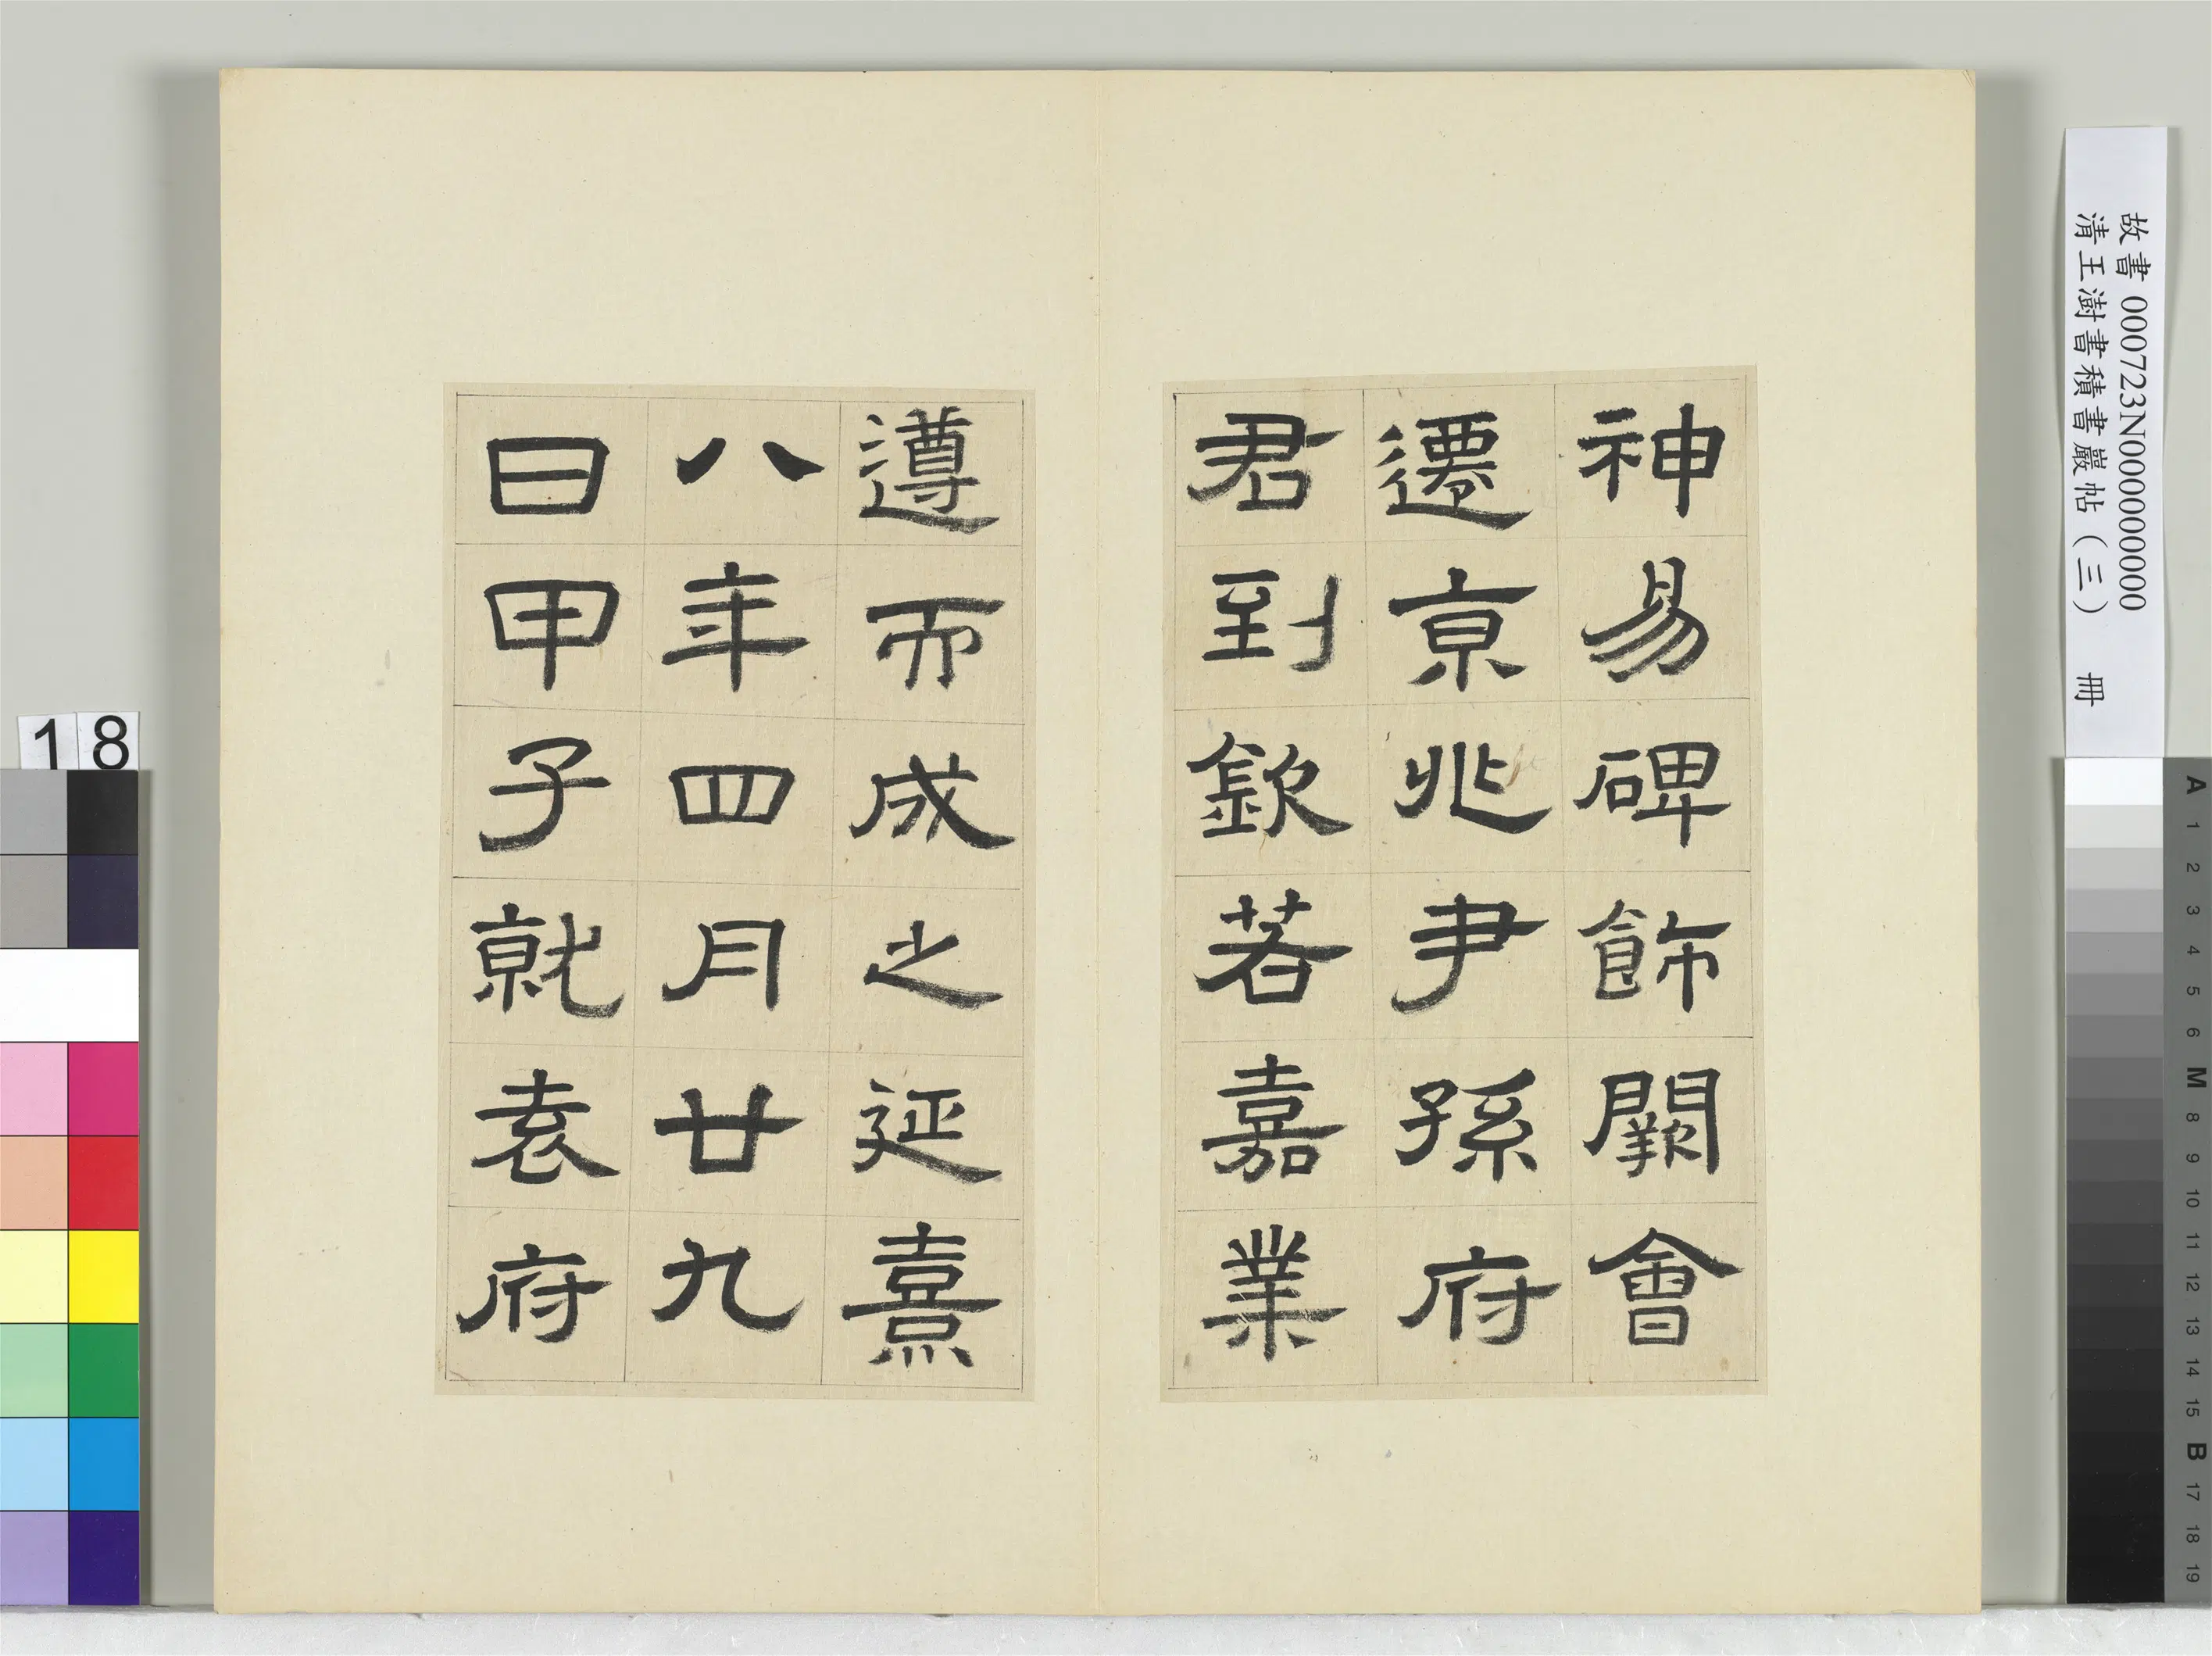 神易碑飾闕會
遷京兆尹孫府
君到欽若嘉業
遵而成之延熹
八年四月廿九
日甲子就袁府
故書 000723N000000000
清王澍書積書巖帖(三) 冊
18
A 1 2 3 4 5 6 M 8 9 10 11 12 13 14 15 B 17 18 19